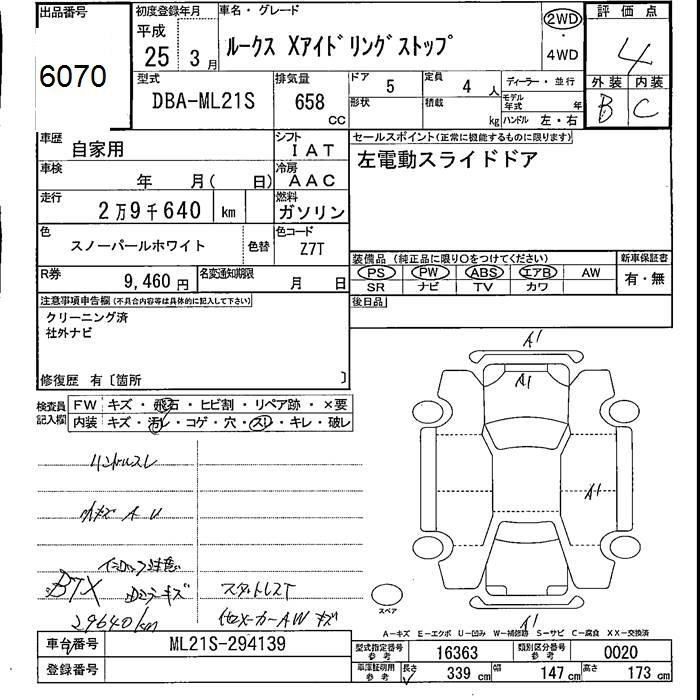 出品番号
6070
初度登録年月
平成
25年 3月
車名・グレード
ルークス Xアイドリングストップ
2WD
・
4WD
評価点
4
外装 内装
B C
型式
DBA-ML21S
排気量
658
CC
ドア 5
定員 4人
形状
積載 kg
ディーラー・並行
モデル年式 年
ハンドル 左・右
車歴
自家用
シフト
IAT
車検
年 月( 日)
冷房
AAC
走行
2万9千640 km
燃料
ガソリン
色
スノーパールホワイト
色替
色コード
Z7T
R券
9,460円
名変通知期限
月 日
セールスポイント(正常に機能するものに限ります)
左電動スライドドア
装備品(純正品に限り○をつけてください)
PS PW ABS エアB AW
SR ナビ TV カワ
新車保証書
有・無
後日品
注意事項申告欄(不具合内容等は具体的に記入して下さい)
クリーニング済
社外ナビ
修復歴 有〔箇所 〕
検査員
記入欄
FW キズ・飛石・ヒビ割・リペア跡・×要
内装 キズ・汚レ・コゲ・穴・スレ・キレ・破レ
ハンドルスレ
小キズ A U
BTX
29640km
スタットレスT
他メーカーAW キズ
A1
A1
A1
A1
スペア
A-キズ E-エクボ U-凹み W-補修跡 S-サビ C-腐食 XX-交換済
車台番号
ML21S-294139
登録番号
型式指定番号
参考
16363
類別区分番号
参考
0020
車庫証明用
参考
長さ 339 cm
幅 147 cm
高さ 173 cm